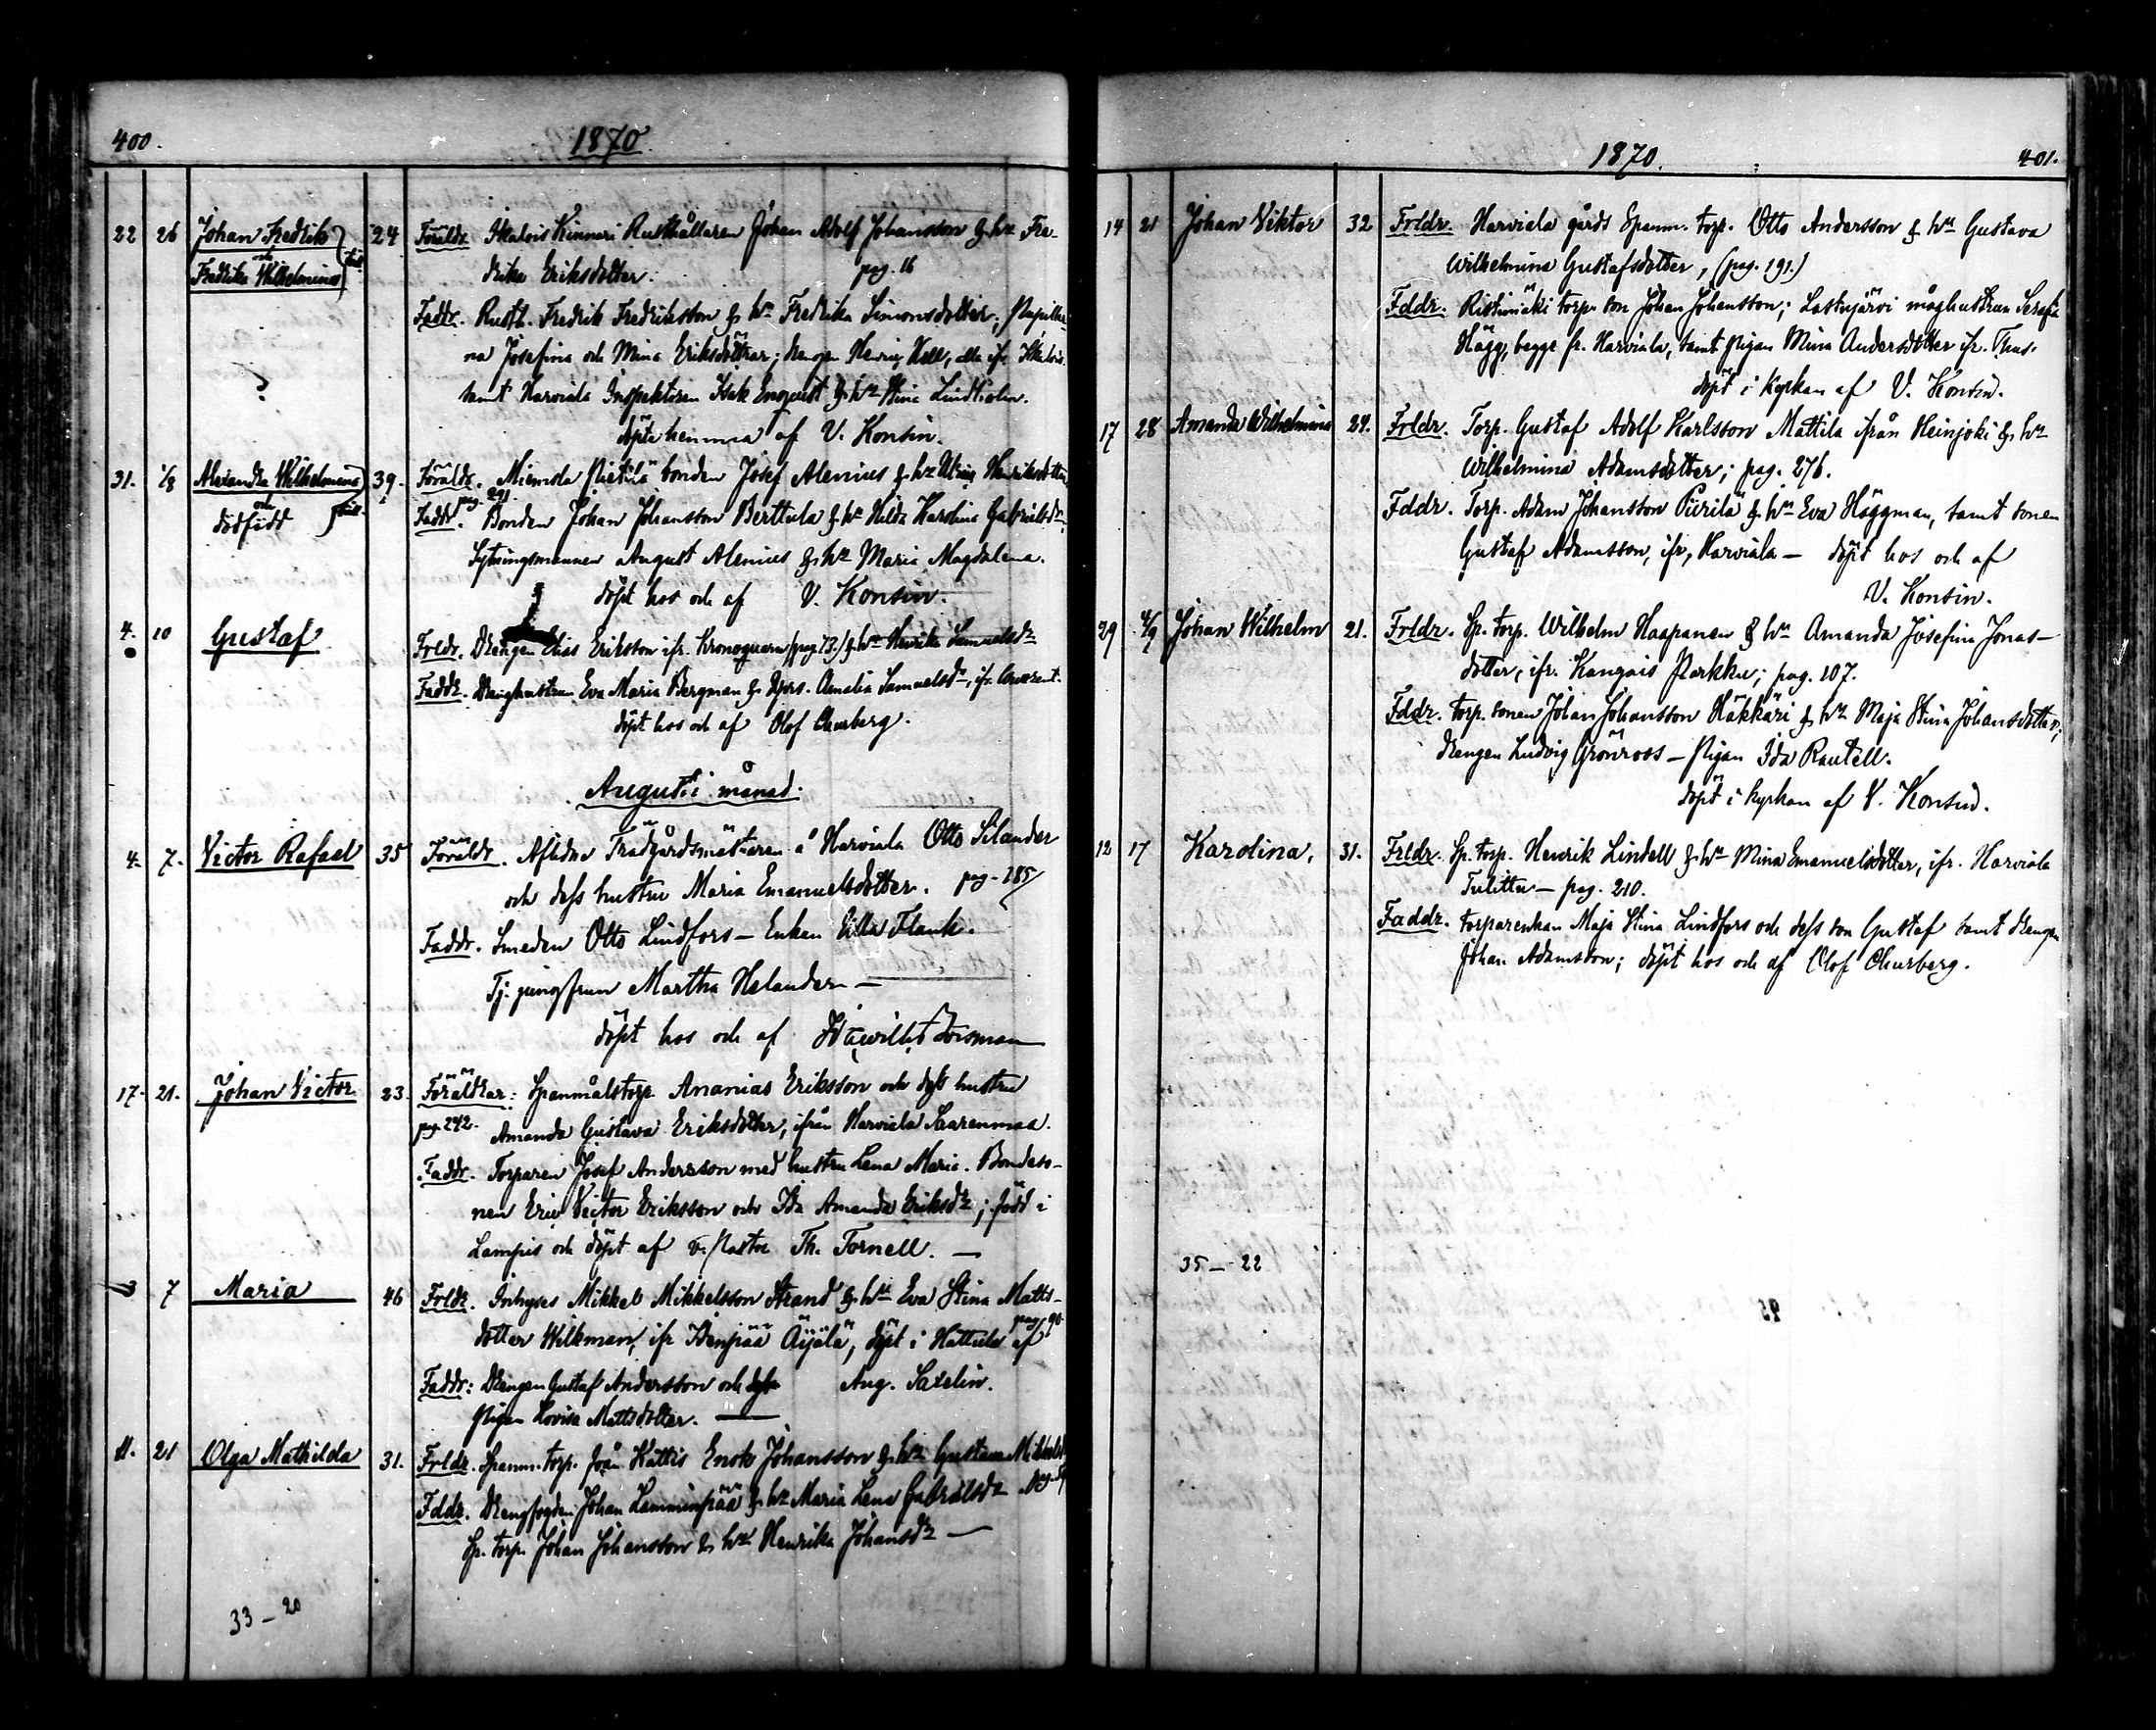 400.
1870.
22 26 Johan Fredrik 24 Föräldr. Ikalois Kinnari Rusthållaren Johan Adolf Johansson & h:u Fre-
och
Fredrika Wilhelmina drika Eriksdotter. pag. 16
Faddr. Rusth. Fredrik Fredriksson & h:u Fredrika Simonsdotter;
na Josefina och Mina Eriksdöttrar; drengen Henrik Hell, alla ifr. Ikalois
?
samt Harviala Inspektoren Isak Enqvist & h:u Stina Lindholm.
döpte hemma af V. Konsin.
31. 1/8 Alexandra Wilhelmina 39. Föräldr. Miemola Pietilä bonden Josef Alenius & h:u Ulrica Henriksdotter
och dödfödd pag. 291
Faddr. Bonden Johan Johansson Berttula & h:u Hilda Karolina Gabrielsdr
Sytningsmannen August Alenius & h:u Maria Magdalena.
döpt hos och af V. Konsin.
4. 10 Gustaf Frldr. Drengen Elias Eriksson ifr. Kronoqvarn (pag. 73.) & h:u Henrika Samuelsdr
Faddr. Drenghustrun Eva Maria Bergman & Amalia Samuelsdr, ifr.
döpt hos och af Olof Churberg.
Augusti månad.
4. 7. Victor Rafael 35 Föräldr. Aflidne Trädgårdsmästaren å Harviala Otto Silander
och dess hustru Maria Emanuelsdotter. pag. 185
Faddr. Smeden Otto Lindfors – Enkan Ulla Flank.
Tj. jungfrun Martha Helander –
döpt hos och af Forsman
17. 21. Johan Victor 23. Föräldrar: Spanmålstorp. Ananias Eriksson och dess hustru
pag. 242. Amanda Gustava Eriksdotter, ifrån Harviala Saarenmaa.
Faddr. Torparen Josef Andersson med hustru Lena Maria. Bondeso-
nen Eric Victor Eriksson och Ida Amanda Eriksdr; född i
Lampis och döpt af v. Pastor Th. Tornell. –
3 7 Maria 46 Frldr. Inhyses Mikkel Mikkelsson Strand & h:u Eva Stina Matts-
dotter Wilkman, ifr. Idenpää Äijälä, döpt i Hattula af pag. 90
Faddr: Drengen Gustaf Andersson och dess Aug. Saxelin.
Pigan Lovisa Mattsdotter. –
11. 21 Olga Mathilda 31. Frldr. Spanm. torp. från Kattis Enok Johansson & h:u Gustava
Fddr. Drengfogden Johan Lamminpää & h:u Maria Lena Gabrielsdr
Sp. torp. Johan Johansson & h:u Henrika Johansdr –
33 – 20
1870.
401.
14 21 Johan Viktor 32 Frldr. Harviala gårds Spanm. torp. Otto Andersson & h:u Gustava
Wilhelmina Gustafsdotter, (pag. 191.)
Fddr. Ristimäki torpe son Johan Johansson; Lastujärvi måghustrun Serafia
Hägg, begge fr. Harviala, samt pigan Mina Andersdotter ifr. Thus.
döpt i Kyrkan af V. Konsin.
17 28 Amanda Wilhelmina 29. Frldr. Torp. Gustaf Adolf Karlsson Mattila ifrån Heinjoki & h:u
Wilhelmina Adamsdotter; pag. 276.
Fddr. Torp. Adam Johansson Piirilä & h:u Eva Häggman, samt sonen
Gustaf Adamsson, ifr. Harviala – döpt hos och af
V. Konsin.
29 4/9 Johan Wilhelm 21. Frldr. Sp. torp. Wilhelm Haapanen & h:u Amanda Josefina Jonas-
dotter, ifr. Kangais Parkku; pag. 107.
Fddr. torp. sonen Johan Johansson Häkkäri & h:u Maja Stina Johansdotter;
drengen Ludvig Grönroos – Pigan Ida Rautell.
döpt i kyrkan af V. Konsin.
12 17 Karolina, 31. Frldr. Sp. torp. Henrik Lindell & h:u Mina Emanuelsdotter, ifr. Harviala
Tulittu – pag. 210.
Faddr. torparenkan Maja Stina Lindfors och dess son Gustaf samt drengen
Johan Adamsson; döpt hos och af Olof Churberg.
35 – 22